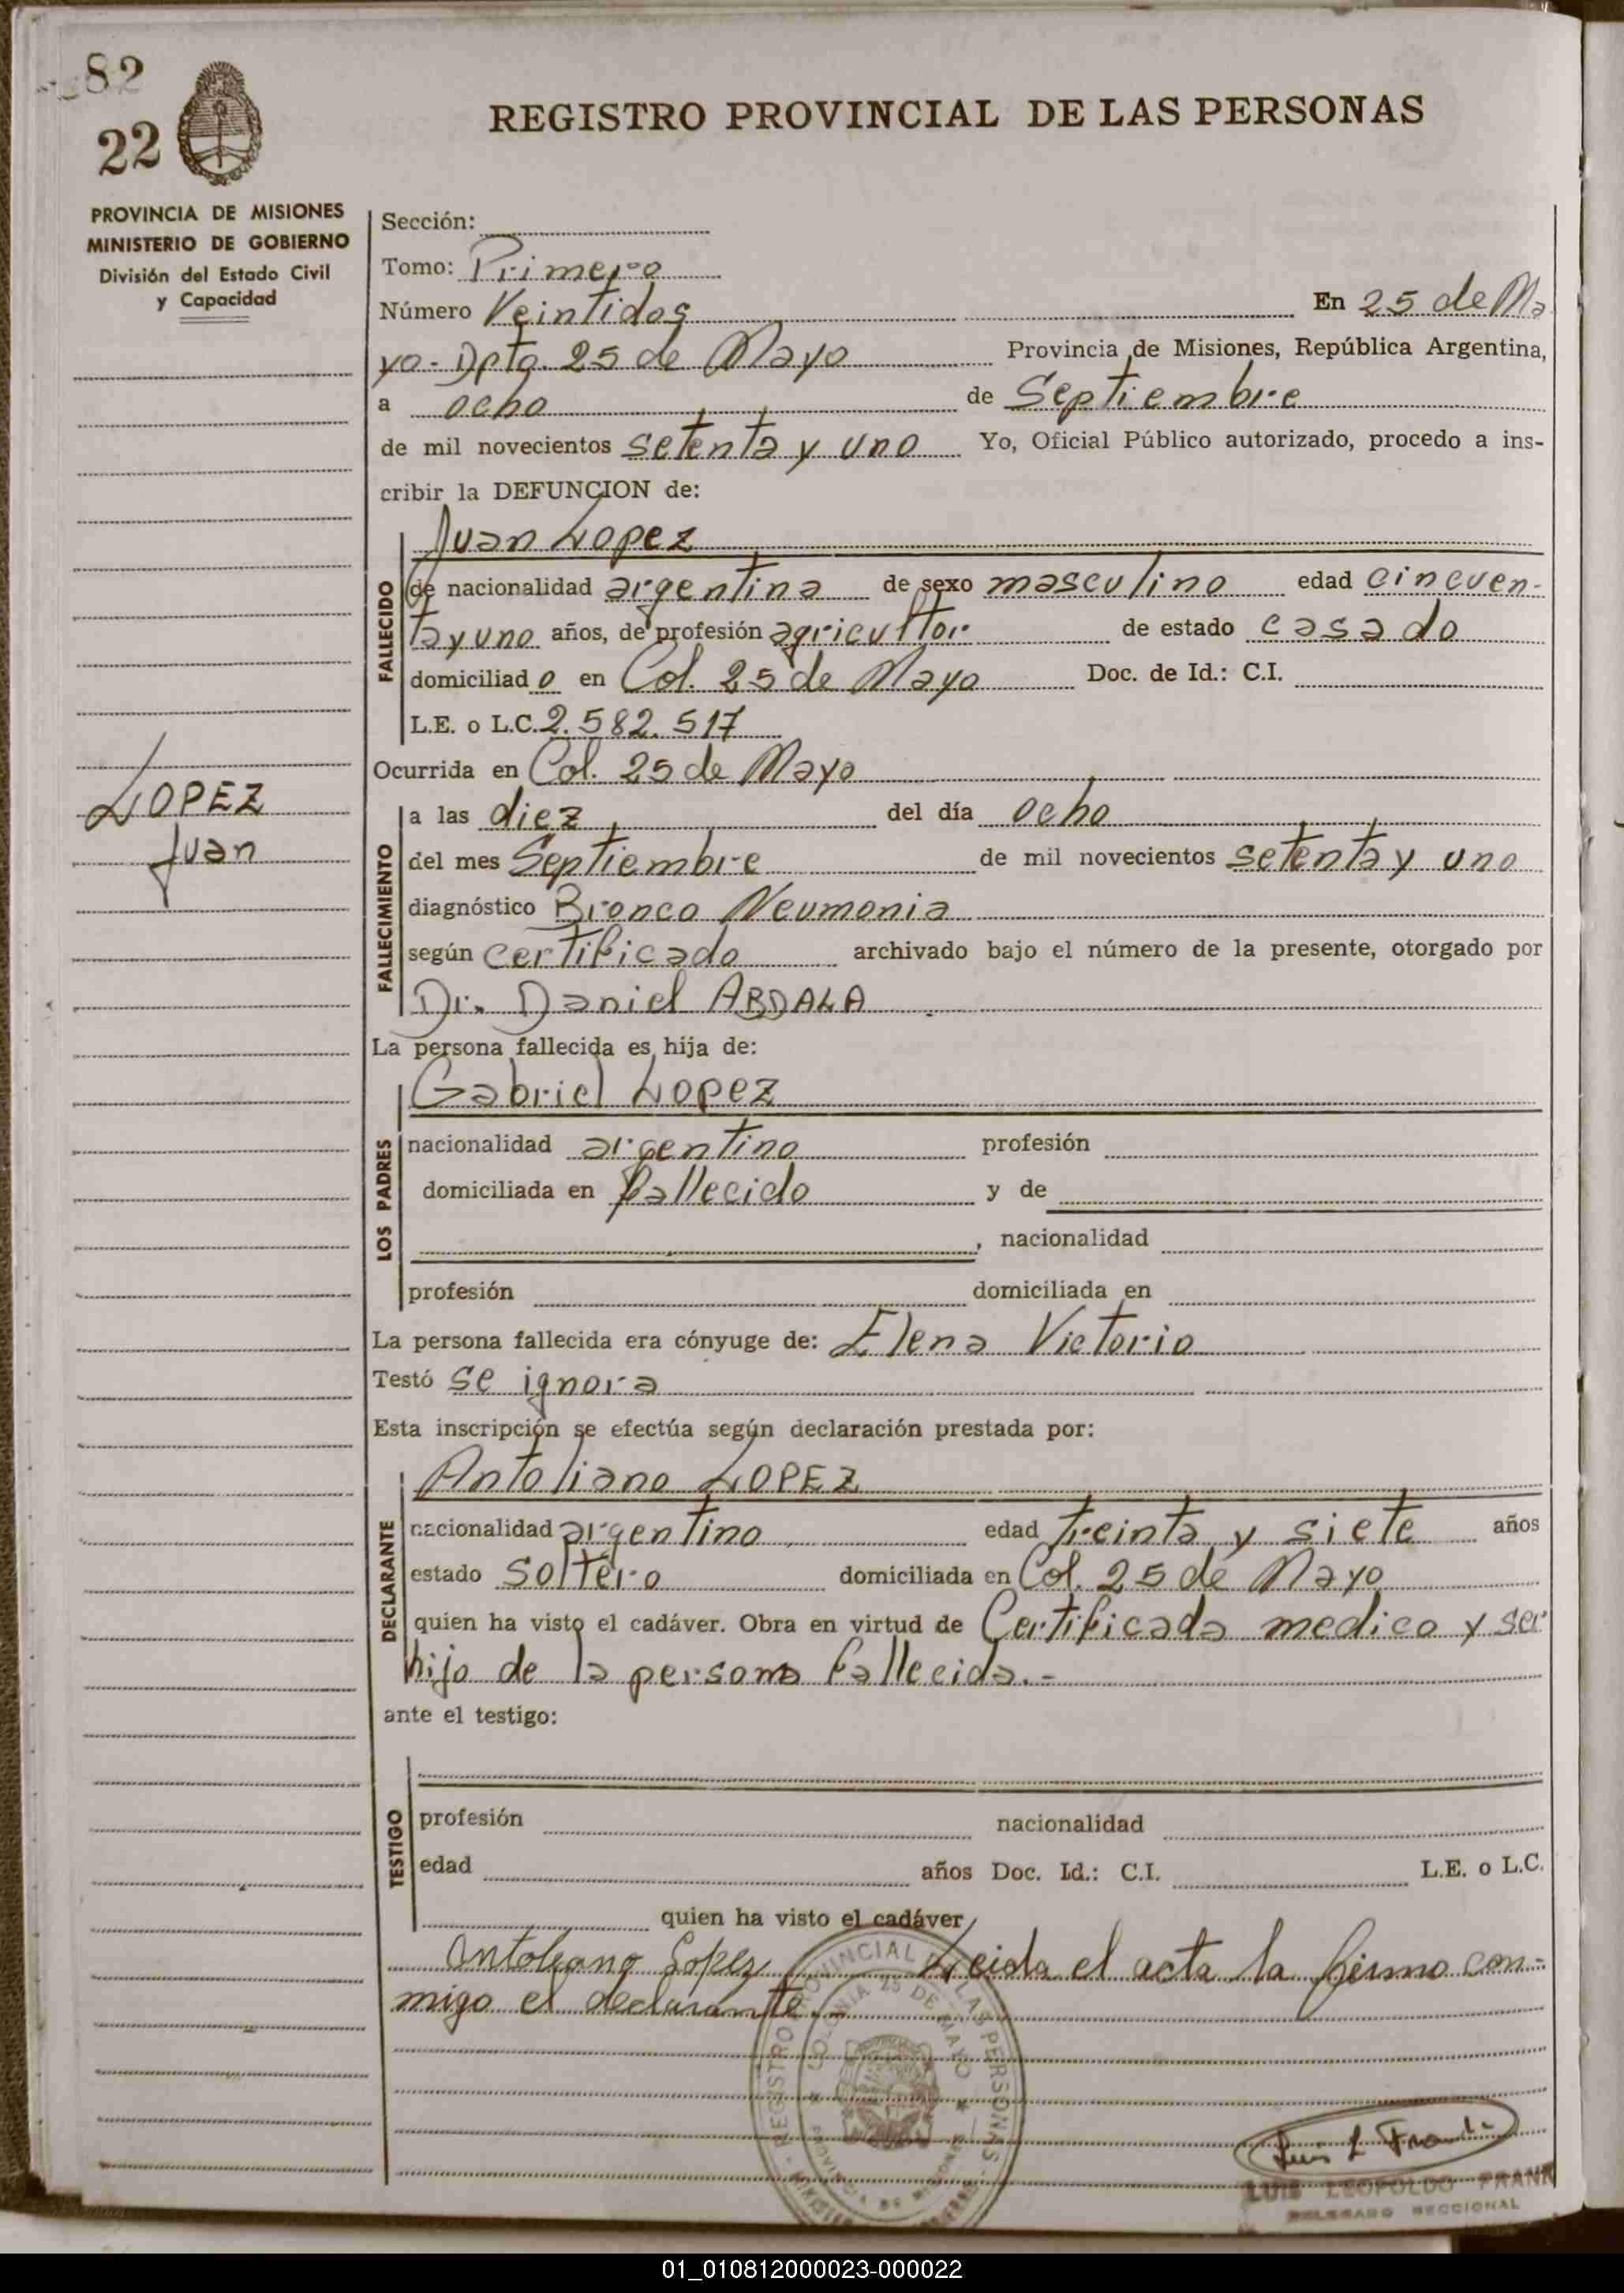 82
22
REGISTRO PROVINCIAL DE LAS PERSONAS
PROVINCIA DE MISIONES
MINISTERIO DE GOBIERNO
División del Estado Civil
y Capacidad
Sección:
Tomo: Primero
Número Veintidos En 25 de Ma
yo - Dpto. 25 de Mayo Provincia de Misiones, República Argentina,
a ocho de Septiembre
de mil novecientos setenta y uno Yo, Oficial Público autorizado, procedo a ins-
cribir la DEFUNCION de:
Juan Lopez
FALLECIDO
de nacionalidad argentina de sexo masculino edad cincuen-
ta y uno años, de profesión agricultor de estado casado
domiciliad o en Col. 25 de Mayo Doc. de Id.: C.I.
L.E. o L.C. 2.582.517
Ocurrida en Col. 25 de Mayo
LOPEZ
Juan
FALLECIMIENTO
a las diez del día ocho
del mes Septiembre de mil novecientos setenta y uno
diagnóstico Bronco Neumonia
según certificado archivado bajo el número de la presente, otorgado por
Dr. Daniel ABDALA
La persona fallecida es hija de:
Gabriel Lopez
LOS PADRES
nacionalidad argentino profesión
domiciliada en fallecido y de
, nacionalidad
profesión domiciliada en
La persona fallecida era cónyuge de: Elena Victorio
Testó se ignora
Esta inscripción se efectúa según declaración prestada por:
Antoliano LOPEZ
DECLARANTE
nacionalidad argentino edad treinta y siete años
estado soltero domiciliada en Col. 25 de Mayo
quien ha visto el cadáver. Obra en virtud de Certificado medico y ser
hijo de la persona fallecida.-
ante el testigo:
TESTIGO
profesión nacionalidad
edad años Doc. Id.: C.I. L.E. o L.C.
quien ha visto el cadáver
Antoliano Lopez Leida el acta la firmo con-
migo el declarante.-
REGISTRO PROVINCIAL DE LAS PERSONAS
COLONIA 25 DE MAYO
PROVINCIA DE MISIONES
LUIS LEOPOLDO FRANK
DELEGADO SECCIONAL
01_010812000023-000022